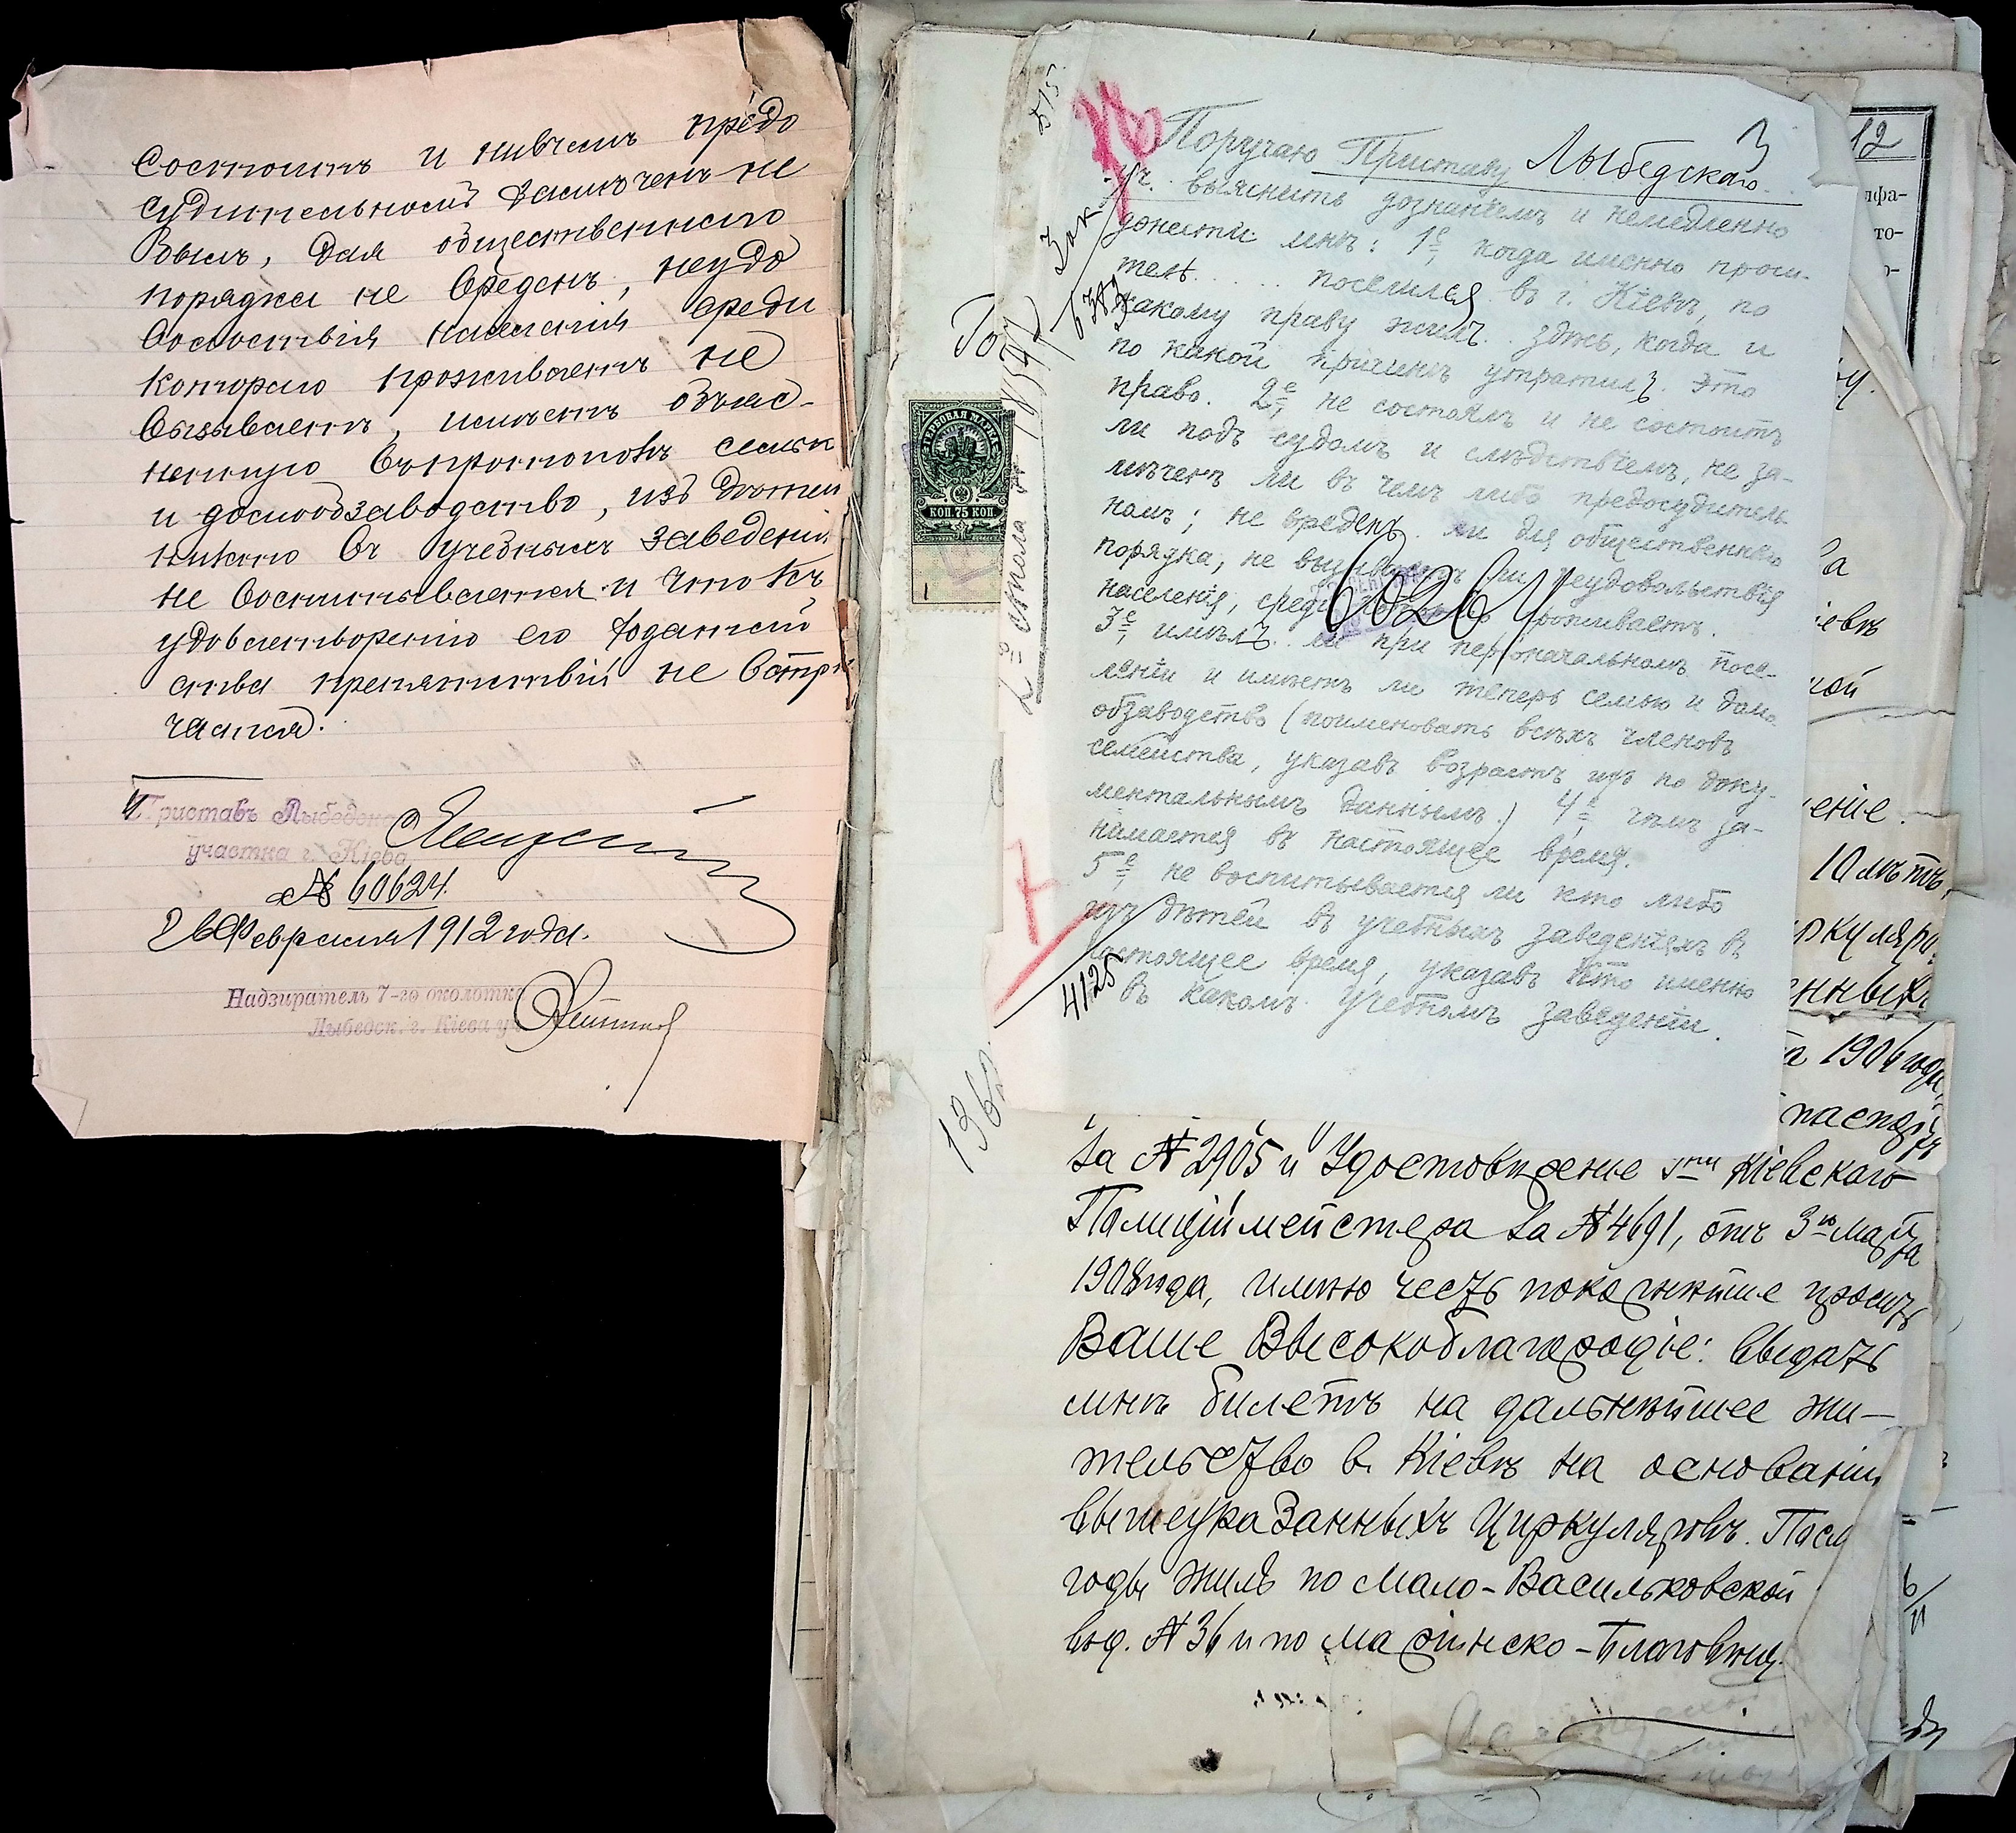 состоитъ и ничемъ предо
судительномъ замѣченъ не
былъ, для общественнаго
порядка не вреденъ, неудо
вольствія населенія среди
котораго проживаетъ не
вызываетъ, имѣетъ обѣяс-
ненную въ протоколѣ семью
и домообзаводство, изъ дѣтей
никто въ учебныхъ заведені
не воспитывается и что къ
удовлетворенію его ходатай
ства препятствій не встрѣ
чается.
Приставъ Лыбедска
участка г. Кіева
№ 60624
Февраля 1912 года.
Надзиратель 7-го околотка
Лыбедск. г. Кіева уч
515
Поручаю Приставу Лыбедскаго
уч. выяснить дознаніемъ и немедленно
донести мнѣ: 1е, когда именно проси-
тел. . . . поселился въ г. Кіевѣ, по
какому праву жилъ. . здѣсь, когда и
по какой причинѣ утратил. это
право. 2е, не состоялъ и не состоитъ
ли подъ судомъ и слѣдствіемъ, не за-
мѣченъ ли въ чемъ либо предосудитель
номъ; не вреденъ. ли для общественнаго
порядка, не вызываетъ ли неудовольствія
населенія, среди котораго проживаетъ.
3е, имѣлъ. ли при первоначальномъ посе-
леніи и имѣетъ ли теперь семью и домо-
обзаводство (поименовать всѣхъ членовъ
семейства, указавъ возрастъ ихъ по доку-
ментальнымъ даннымъ.) 4е, чѣмъ за-
нимается въ настоящее время.
5е, не воспитывается ли кто либо
изъ дѣтей въ учебныхъ заведеніяхъ въ
настоящее время, указавъ кто именно
въ какомъ учебномъ заведеніи.
60264
4125
1362
КОП. 75 КОП.
12
10 лѣтъ,
1906 года,
за № 2905 и Удостовѣреніе Кіевскаго
Полиціймейстера за № 4691, отъ 3го Марта
1908 года, имѣю честь покорнѣйше просить
Ваше Высокоблагородіе: выдать
мнѣ билетъ на дальнѣйшее жи-
тельство въ Кіевѣ на основаніи
вышеуказанныхъ Циркуляровъ. Посл
годы жилъ по Мало-Васильковской
под. № 36 и по Маріинско-Благовѣщ.